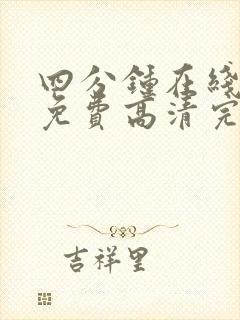 四分鍾在綫
免費高清完
吉祥里